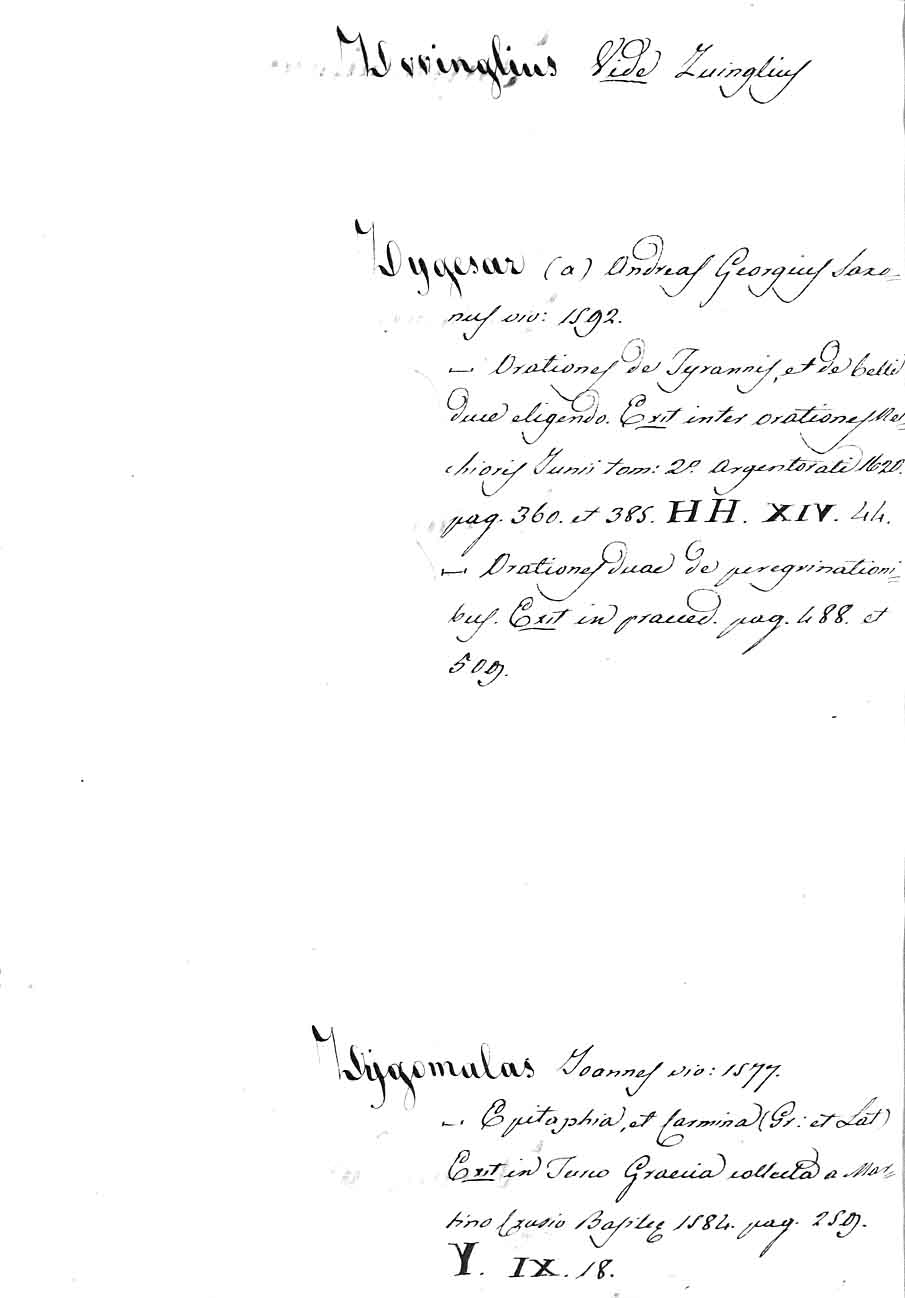 Zwinglius Vide Zuinglius
Zygesar (a) Andreas Georgius Saxo=
nus viv: 1592.
— Orationes de Tyrannis, et de belli
duce eligendo. Exit inter orationes Mel=
chioris Junii tom: 2º. Argentorati 1620.
pag. 360. et 385. HH. XIV. 44.
— Orationes duae de peregrinationi=
bus. Exit in praeced. pag. 488. et
509.
Zygomalas Joannes viv: 1577.
— Epitaphia, et Carmina (Gr: et Lat)
Exit in Turco Graecia collecta a Mar=
tino Crusio Basileę 1584. pag. 259.
Y. IX. 18.